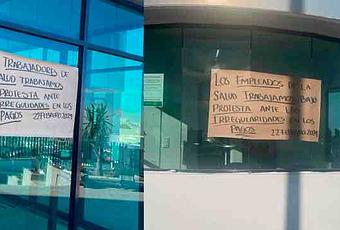 TRABAJADORES DE
SALUD TRABAJAMOS
PROTESTA ANTE
IRREGULIDADES EN LOS
PAGOS 22 FEBRERO 2024
LOS EMPLEADOS DE LA
SALUD TRABAJAMOS BAJO
PROTESTA ANTE LAS
IRREGULARIDADES EN LOS
PAGOS 22 FEBRERO 2024